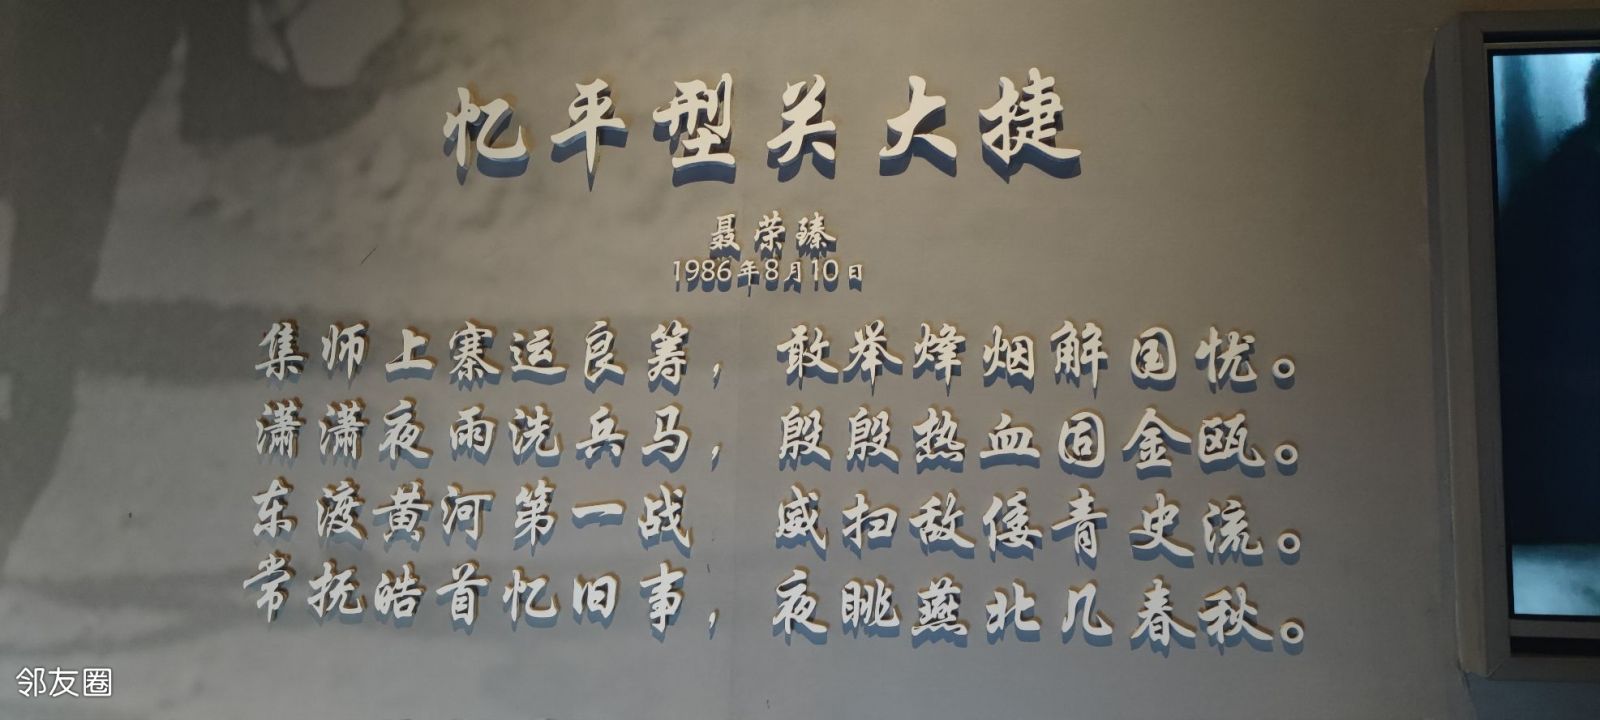 忆平型关大捷
聂荣臻
1986年8月10日
集师上寨运良筹，敢举烽烟解国忧。
潇潇夜雨洗兵马，殷殷热血固金瓯。
东渡黄河第一战 威扫敌倭青史流。
常抚皓首忆旧事，夜眺燕北几春秋。
邻友圈